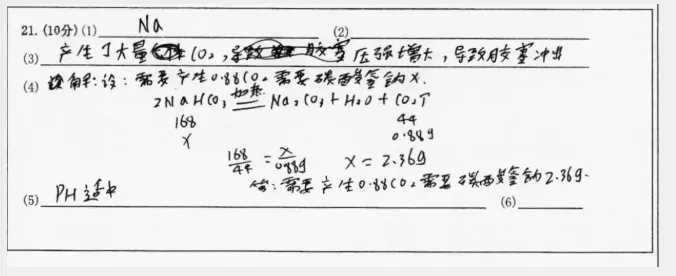 21. (10分) (1) Na (2)
(3) 产生了大量CO₂,导致胶塞压强增大,导致胶塞冲出
(4) 解:设:需要产生0.88CO₂需要碳酸氢钠X.
2NaHCO₃ 加热 Na₂CO₃+H₂O+CO₂↑
168 44
X 0.88g
168/44 = X/0.88g X=2.36g
答:需要产生0.88CO₂需要碳酸氢钠2.36g.
(5) PH适中 (6)